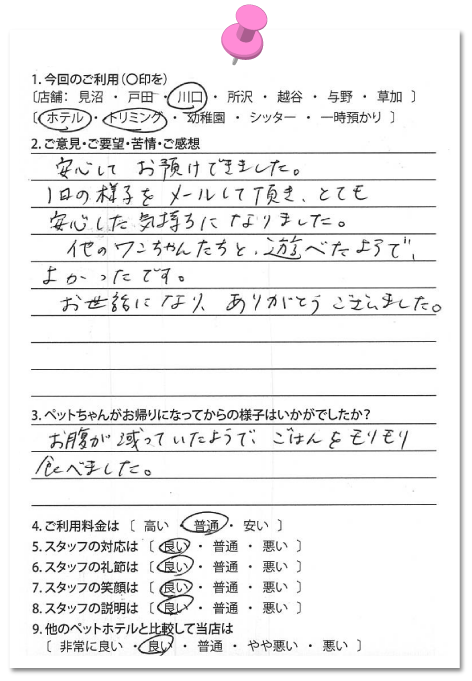 1. 今回のご利用(〇印を)
〔店舗: 見沼 ・ 戸田 ・ 川口 ・ 所沢 ・ 越谷 ・ 与野 ・ 草加 〕
〔 ホテル ・ トリミング ・ 幼稚園 ・ シッター ・ 一時預かり 〕
2. ご意見・ご要望・苦情・ご感想
安心して お預けできました。
1日の様子を メールして頂き、とても
安心した気持ちになりました。
他のワンちゃんたちと、遊べたようで、
よかったです。
お世話になり、ありがとうございました。
3. ペットちゃんがお帰りになってからの様子はいかがでしたか?
お腹が減っていたようで、ごはんをモリモリ
食べました。
4. ご利用料金は 〔 高い ・ 普通 ・ 安い 〕
5. スタッフの対応は 〔 良い ・ 普通 ・ 悪い 〕
6. スタッフの礼節は 〔 良い ・ 普通 ・ 悪い 〕
7. スタッフの笑顔は 〔 良い ・ 普通 ・ 悪い 〕
8. スタッフの説明は 〔 良い ・ 普通 ・ 悪い 〕
9. 他のペットホテルと比較して当店は
〔 非常に良い ・ 良い ・ 普通 ・ やや悪い ・ 悪い 〕